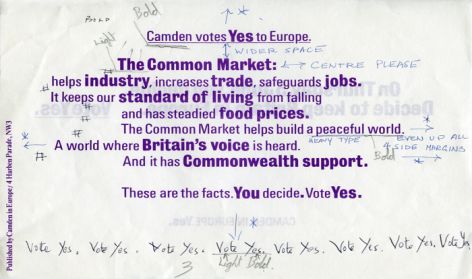 BOLD
Bold
Light
Camden votes Yes to Europe.
WIDER SPACE
The Common Market:
CENTRE PLEASE
helps industry, increases trade, safeguards jobs.
It keeps our standard of living from falling
and has steadied food prices.
The Common Market helps build a peaceful world.
HEAVY TYPE
Bold
EVEN UP ALL
4 SIDE MARGINS
A world where Britain's voice is heard.
And it has Commonwealth support.
These are the facts. You decide. Vote Yes.
Vote Yes. Vote Yes. Vote Yes. Vote Yes. Vote Yes. Vote Yes. Vote Yes. Vote Yes
3 Light Bold.
Published by Camden in Europe / 4 Harben Parade, NW3